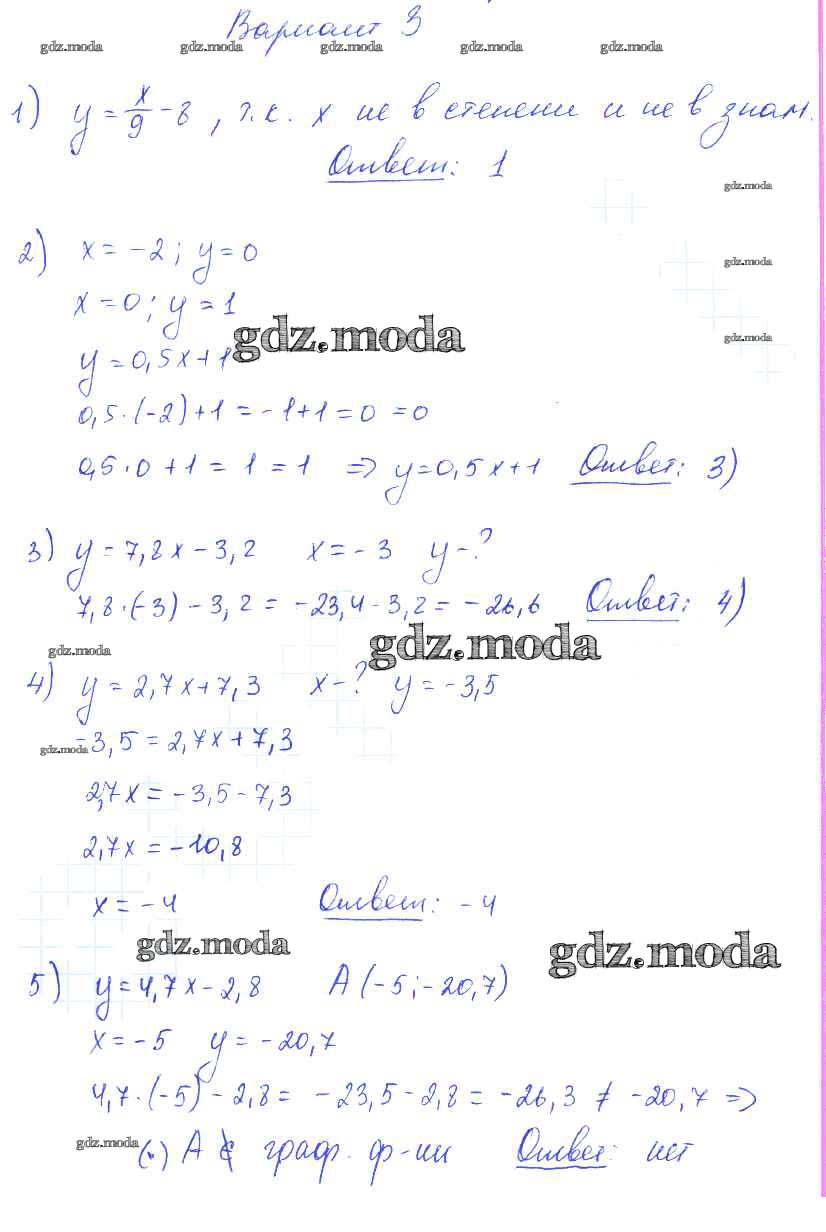 Вариант 3
gdz.moda gdz.moda gdz.moda gdz.moda gdz.moda
1) y = x/9 - 8, т.к. x не в степени и не в знам.
Ответ: 1
gdz.moda
2) x = -2; y = 0
gdz.moda
x = 0; y = 1
gdz.moda
gdz.moda
y = 0,5x+1
0,5·(-2)+1 = -1+1 = 0 = 0
0,5·0+1 = 1 = 1 => y = 0,5x+1 Ответ: 3)
3) y = 7,8x - 3,2 x = -3 y-?
7,8·(-3) - 3,2 = -23,4 - 3,2 = -26,6 Ответ: 4)
gdz.moda gdz.moda
4) y = 2,7x+7,3 x-? y = -3,5
gdz.moda -3,5 = 2,7x+7,3
2,7x = -3,5 - 7,3
2,7x = -10,8
x = -4 Ответ: -4
gdz.moda gdz.moda
5) y = 4,7x - 2,8 A (-5; -20,7)
x = -5 y = -20,7
4,7·(-5) - 2,8 = -23,5 - 2,8 = -26,3 ≠ -20,7 =>
gdz.moda (·) A ∉ граф. ф-ии Ответ: нет